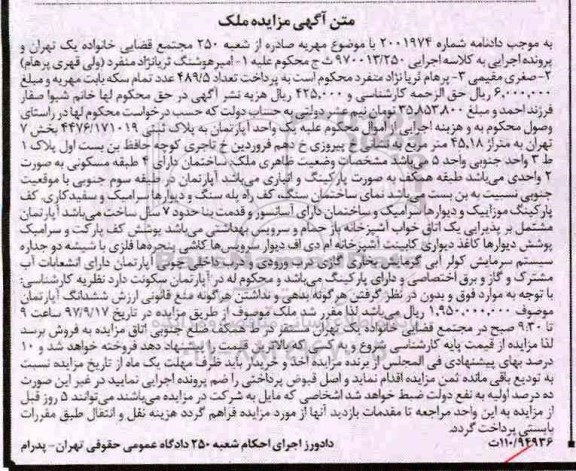 متن آگهی مزایده ملک
به موجب دادنامه شماره ۲۰۰۱۹۷۴ با موضوع مهریه صادره از شعبه ۲۵۰ مجتمع قضایی خانواده یک تهران و
پرونده اجرایی به کلاسه اجرایی ۹۷۰۰۱۳/۲۵۰ ث ج محکوم علیه ۱- امیرهوشنگ ثریانژاد منفرد (ولی قهری پرهام)
۲-صغری مقیمی ۳- پرهام ثریانژاد منفرد محکوم است به پرداخت تعداد ۴۸۹/۵ عدد تمام سکه بابت مهریه و مبلغ
۶,۰۰۰,۰۰۰ ریال حق الزحمه کارشناسی و ۴۲۵,۰۰۰ ریال هزینه نشر آگهی در حق محکوم لها خانم شیوا صفار
فرزند احمد و مبلغ ۳۵,۸۵۳,۸۰۰ تومان نیم عشر دولتی به حساب دولت که حسب درخواست محکوم لها در راستای
وصول محکوم به و هزینه اجرایی از اموال محکوم علیه یک واحد آپارتمان به پلاک ثبتی ۴۴۷۶/۱۷۱۰۱۹ بخش ۷
تهران به متراژ ۴۵,۱۸ متر مربع به نشانی خ پیروزی خ دهم فروردین خ تاجری کوچه حافظ بن بست اول پلاک ۱
ط ۳ واحد جنوبی واحد ۵ می‌باشد مشخصات وضعیت ظاهری ملک: ساختمان دارای ۴ طبقه مسکونی به صورت
۲ واحدی می‌باشد طبقه همکف به صورت پارکینگ و انباری می‌باشد آپارتمان در طبقه سوم جنوبی با موقعیت
جنوبی نسبت به بن بست می‌باشد نمای ساختمان سنگ، کف راه پله سنگ و دیوارها سرامیک و سفیدکاری. کف
پارکینگ موزاییک و دیوارها سرامیک و ساختمان دارای آسانسور و قدمت بنا حدود ۷ سال ساخت می‌باشد آپارتمان
مشتمل بر پذیرایی یک اتاق خواب آشپزخانه باز حمام و سرویس بهداشتی می‌باشد پوشش کف پارکت و سرامیک
پوشش دیوارها کاغذ دیواری کابینت آشپزخانه ام دی اف دیوار سرویس‌ها کاشی پنجره‌ها فلزی با شیشه دو جداره
سیستم سرمایش کولر آبی گرمایش بخاری گازی درب ورودی و درب داخلی چوبی آپارتمان دارای انشعابات آب
مشترک و گاز و برق اختصاصی و دارای پارکینگ می‌باشد و محکوم له در آپارتمان سکونت دارد نظریه کارشناسی:
با توجه به موارد فوق و بدون در نظر گرفتن هرگونه بدهی و نداشتن هرگونه منع قانونی ارزش ششدانگ آپارتمان
موصوف ۱,۹۵۰,۰۰۰,۰۰۰ ریال می‌باشد لذا مقرر شد ملک موصوف از طریق مزایده در تاریخ ۹۷/۹/۱۷ ساعت ۹
تا ۹:۳۰ صبح در مجتمع قضایی خانواده یک تهران مستقر در ط همکف ضلع جنوبی اتاق مزایده به فروش برسد
لذا مزایده از قیمت پایه کارشناسی شروع و به کسی که بالاترین قیمت را پیشنهاد دهد فروخته خواهد شد و ۱۰
درصد بهای پیشنهادی فی المجلس از برنده مزایده اخذ و خریدار باید ظرف مهلت یک ماه از تاریخ مزایده نسبت
به تودیع باقی مانده ثمن مزایده اقدام نماید و اصل فیوض پرداختی را ضم پرونده اجرایی نمایید در غیر این صورت
ده درصد اولیه به نفع دولت ضبط خواهد شد اشخاصی که مایل به شرکت در مزایده می‌باشند می‌توانند ۵ روز قبل
از مزایده به این واحد مراجعه تا مقدمات بازدید آنها از مورد مزایده فراهم گردد هزینه نقل و انتقال طبق مقررات
بایستی پرداخت گردد.
۱۱۰/۹۴۹۳۶ت دادورز اجرای احکام شعبه ۲۵۰ دادگاه عمومی حقوقی تهران- پدرام